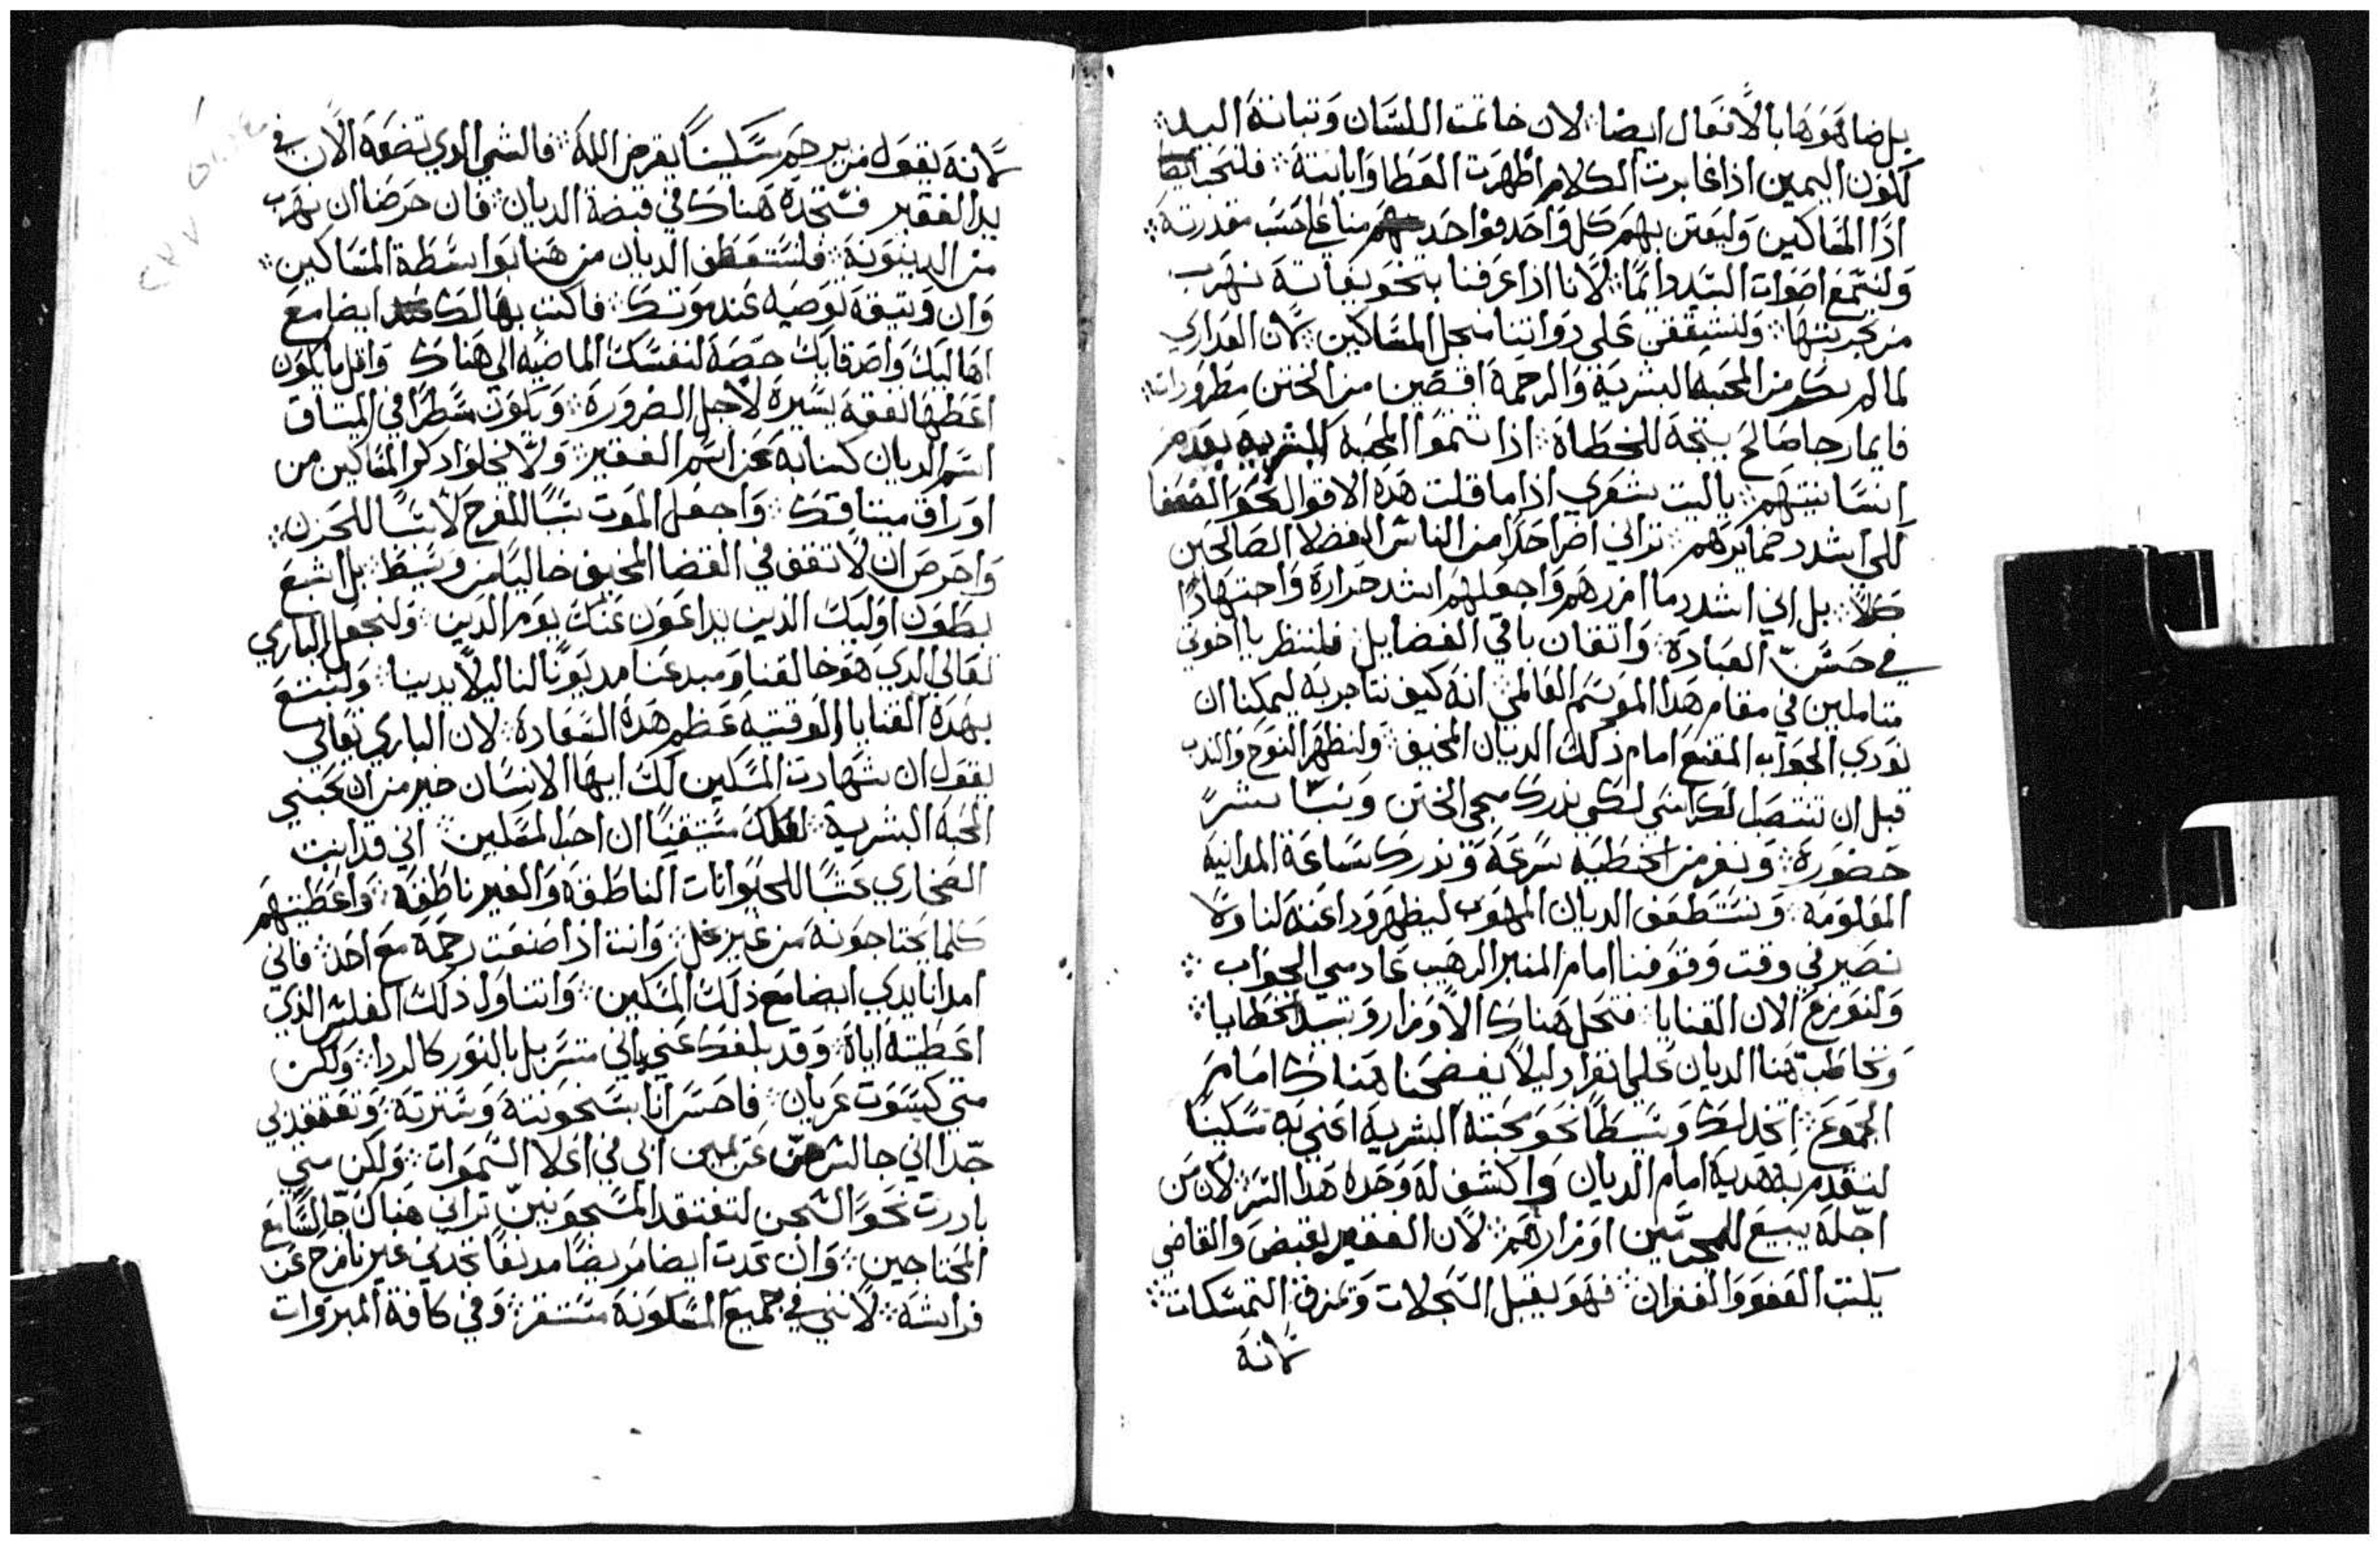 بل ضاهوها بالافعال ايضا ۞ لان خاتمت اللسان وتبانة اليد ۞
لكون اليمين اذا غابرت الكلام اظهرت العطا وابانته ۞ فلنحب ايضا
اذا المساكين وليعتن بهم كل واحد فواحد منا على حسب مقدرته ۞
ولنسمع اصوات السيد دائما ۞ لاننا اذا عرفنا بتخويفاته نهرب
من تجربتها ۞ ولنشفق على ذواتنا منجل المساكين ۞ لان العداري
لما لم يكن من المحبه البشرية والرحمة اقصين من الختن مطرودات ۞
فايما رجا صالح يتجه للخطاة ۞ اذا شموا المحبة البشرية بعدم
انسانيتهم ۞ ياليت شعري اذا ما قلت هذه الاقوال نحو الضعفا
لكي اشدد ضمايرهم ۞ تراني اضر احدا من الناس الفضلا الصالحين
كلا ۞ بل اني اشدد ما ازرهم واجعلهم اشد حرارة واجتهادا
في حسن العبادة ۞ واتقان باقي الفضايل ۞ فلننظر يا اخوتي
متاملين في مقام هذا الموسم العالمي ۞ انه كيف نتاجر به ليمكنا ان
نودي الجواب المقنع امام ذلك الديان المخيف ۞ ولنظهر النوح والندب
قبل ان تنتصب الكراسي لكي ندرك مجي الختن
حضوره ۞ ونفر من الخطيه بسرعة وندرك ساعة المدانيه
المعلومه ۞ ونستعطف الديان المهوب ليظهر وداعته لنا ولا
نصير في وقت وقوفنا امام المنبر الرهيب عادمي الجواب ۞
ولنوزع الان القنايا ۞ فتحل هناك الاوزار وتبيد الخطايا ۞
ونخاطب هنا الديان على انفراد ليلا يفضحنا هناك امام
الجموع ۞ اتخذ لك وسيطا نحو محبته البشريه اعني به مسكينا
لنقدم به هديه امام الديان واكشف له وحده هذا السر ۞ لان من
اجله يبيع للمجرمين اوزارهم ۞ لان الفقير يقبض والقاضي
يكتب العفو والغفران ۞ فهو يقبل السجلات وتمزق التمسكات ۞
لانه
لانه يقول من يرحم مسكينا يقرض الله ۞ فالشي الدي تضعه الان في
يد الفقير فستجده هناك في قبضة الديان ۞ فان حرضا ان تهرب
من الدينونة ۞ فلتستعطف الديان من هنا بواسطة المساكين ۞
وان وتيقة توصيه عند موتك ۞ فاكتب بها لك ايضا مع
اهاليك واصدقايك حصة لنفسك الماضيه الي هناك واقل ما يكون
اعطها نفقة يسيرة لاجل الضرورة ۞ ويكون مسطرا في الميتاق
اسم الديان كنايه عن اسم الفقير ۞ ولا تخلوا دكر المساكين من
اوراق ميتاقك ۞ واجعل الموت سببا للفرح لا سببا للحزن ۞
واحرص ان لا تقف في القضا المخيف خاليا من وسيط ۞ بل اشبع
بطون اوليك الذين يداعون عنك يوم الدين ۞ ولنجعل الباري
تعالي الدي هو خالقنا ومبدعنا مديونا لنا ليلا يديننا ۞ ولنبتع
بهذه القنايا الوقتيه عظم هذه السعادة ۞ لان الباري تعالي
يقول ان شهادت المسكين لك ايها الانسان خير من ان تحبني
المحبة البشرية ۞ متيقنا ان احد المسكين ۞ اني قد ابنت
الصحاري عشبا للحيوانات الناطقة والغير ناطقة ۞ واعطيتهم
كلما يحتاجونه من غير بخل ۞ وانت اذا صنعت رحمة مع احد ۞ فاني
امد انا يدي ايضا مع ذلك المسكين ۞ واتناول ذلك الفلس الذي
اعطيته اياه ۞ وقد بلغك عني باني متسربل بالنور كالردا ۞ ولكن
متي كسوت عريان ۞ فاحسر انا بسخونته وسترته ۞ وتعتقدني
جدا اني جالس عن يمين ابي في اعلا السموات ۞ ولكن متي
بادرت نحو السجن لتفتقد المسجونين تراني هناك جالسا مع
المحتاجين ۞ وان عدت ايضا مريضا مدنفا تجدني غير نازح عن
فراشه ۞ لانني في جميع المسكونة مستقر ۞ وفي كافة المبروات